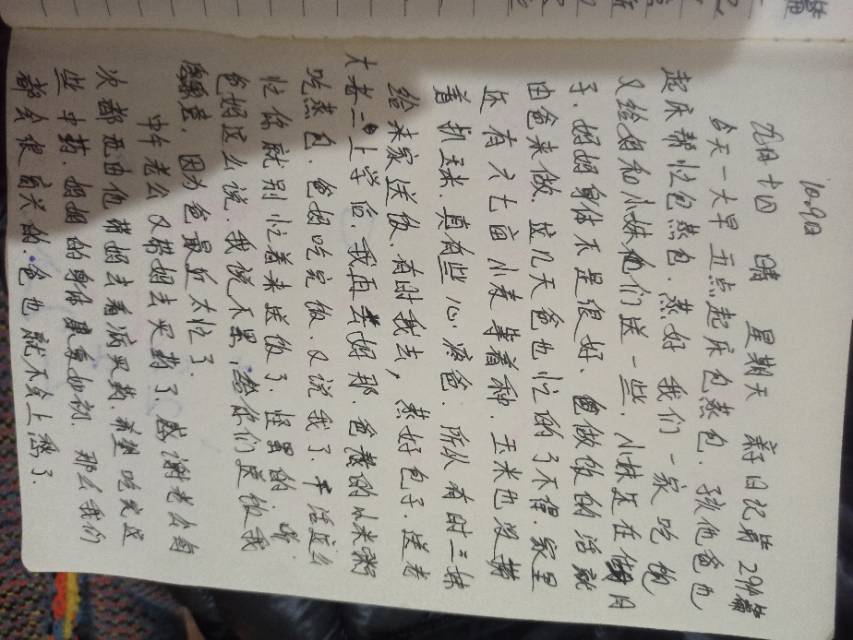 10.9日
九月十四 晴 星期天 新日记第29篇
今天一大早五点起床包蒸包.孩他爸也
起床帮忙包蒸包.蒸好我们一家吃饱
又给妈和小妹他们送一些.小妹还在做月
子.妈妈身体不是很好、爸做饭的活就
由爸来做.这几天爸也忙的了不得.家里
还有六七亩小麦等着种.玉米也没
着扒玉米.真有些心疼爸.所以有时二妹
给来家送饭.有时我去,蒸好包子.送老
大老二上学后.我再去妈那.爸熬的小米粥
吃蒸包.爸妈吃完饭.又说我了.干活这么
忙你就别忙着来送饭了.怪累的
爸妈这么说.我说不累,给你们送饭我
愿意.因为爸最近太忙了
中午老公又带妈去买药了.感谢老公每
次都是由他带妈去看病买药.希望吃完这
些中药.妈妈的身体康复如初.那么我们
都会很高兴的.爸也就不会上愁了.